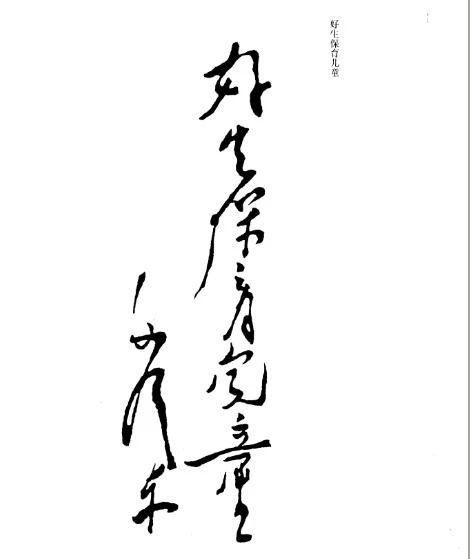 好生保育儿童
好生保育兒童
毛泽东